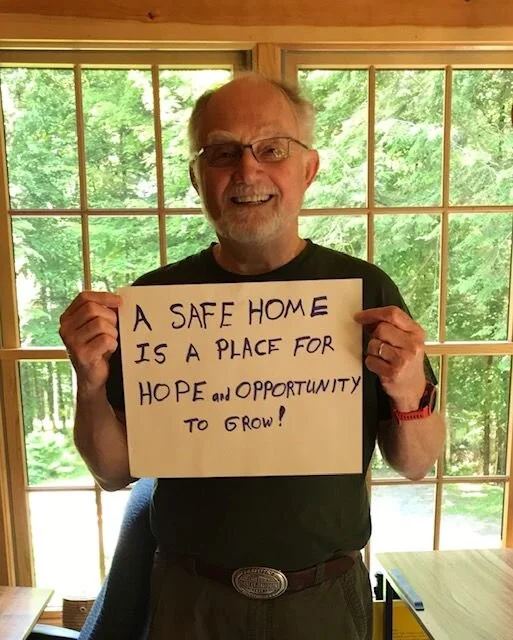 A SAFE HOME
IS A PLACE FOR
HOPE and OPPORTUNITY
TO GROW!